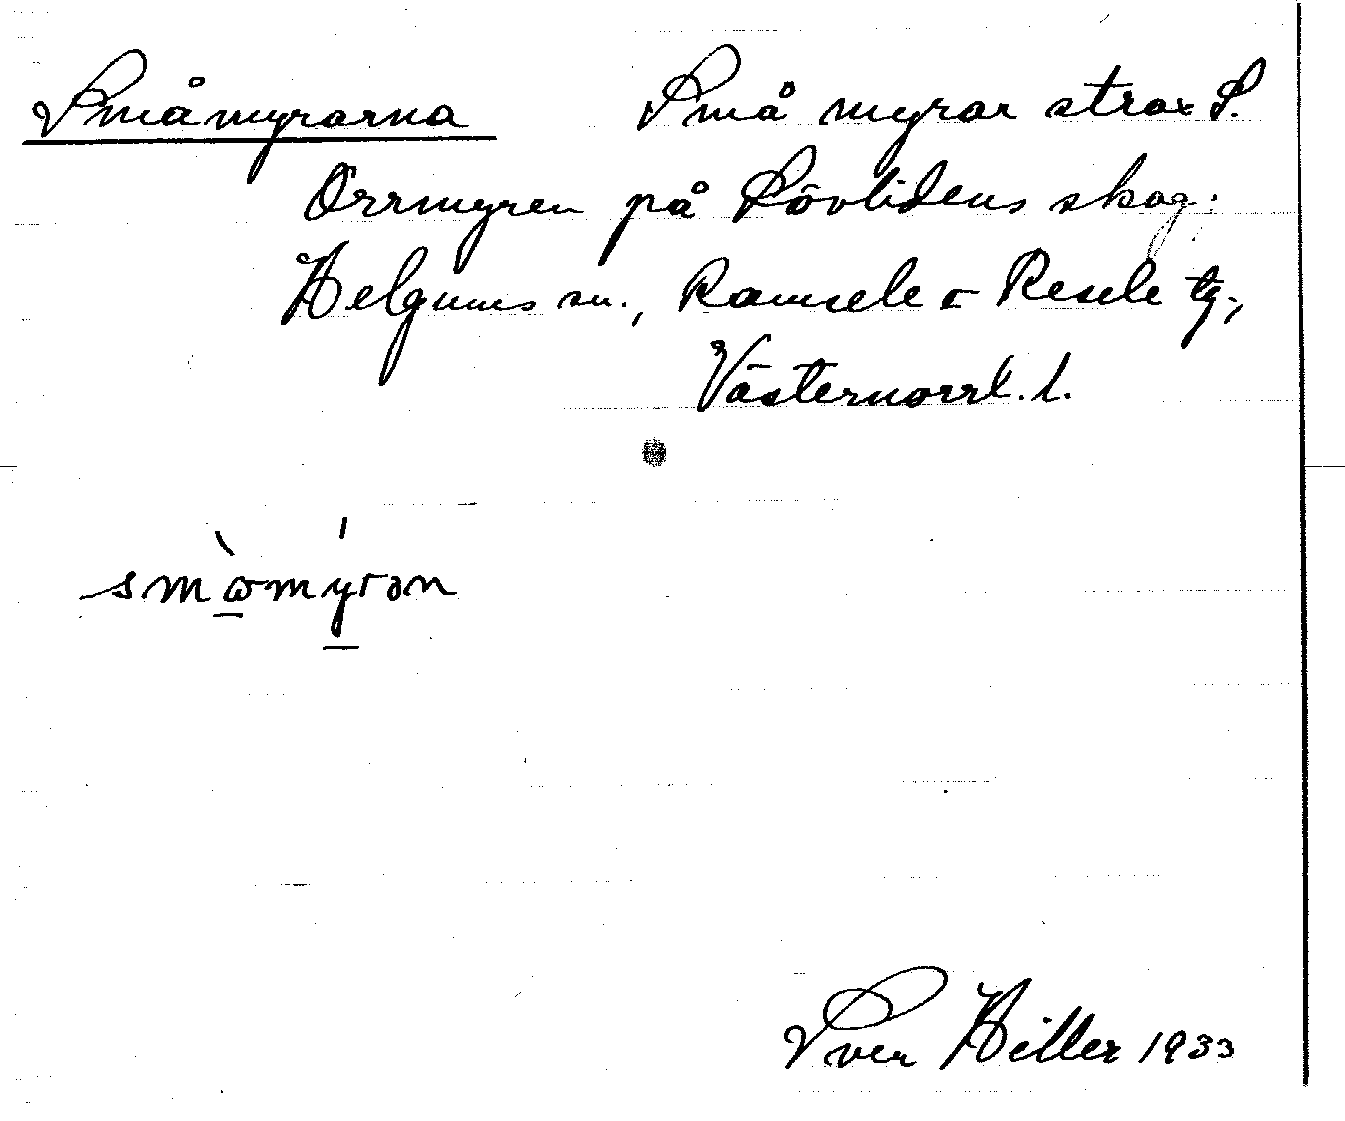 Småmyrarna Små myrar strax S.
Orrmyren på Lövlidens skog.
Helgums sn., Ramsele o Resele tg.,
Västernorrl. l.
smὼmýrən
Sven Hiller 1933